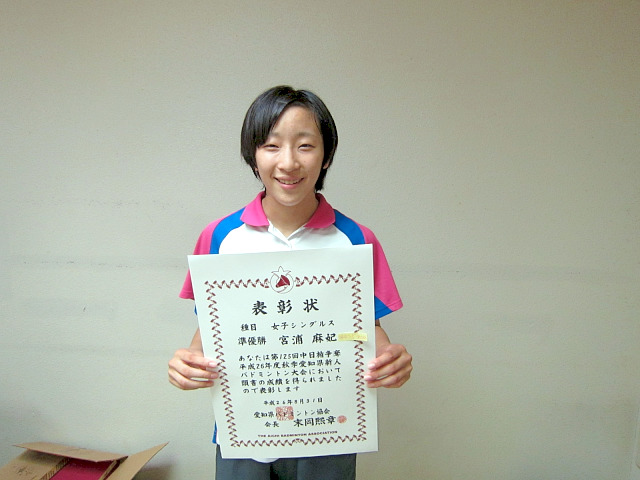 表彰状
種目 女子シングルス
準優勝 宮浦 麻妃
あなたは第125回中日種争奪
平成26年度秋季愛知県新人
バドミントン大会において
頭書の成績を得られました
ので表彰します
平成26年8月31日
愛知県バドミントン協会
会長 末岡熙章
THE AICHI BADMINTON ASSOCIATION